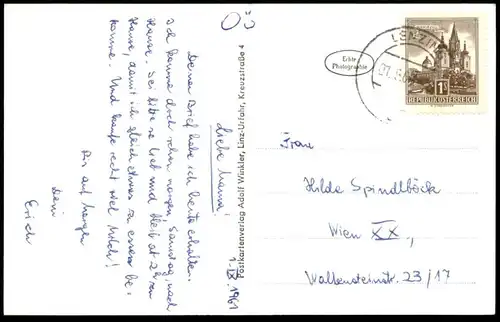 Ö3
1. IX 1961
Liebe Mama!
Deinen Brief habe ich heute erhalten.
Ich komme doch schon morgen Samstag, nach
Hause. Sei bitte so lieb und bleib ab 2h zu
Hause, damit ich gleich etwas zu essen be-
komme. Und kaufe recht viel Milch!
Bis auf morgen
Dein
Erich
Postkartenverlag Adolf Winkler, Linz-Urfahr, Kreuzstraße 4
Echte
Photographie
LENZIN
01.
1S
REPUBLIK ÖSTERREICH
Frau
Hilde Spindlböck
Wien XX.,
Wallensteinstr. 23/17